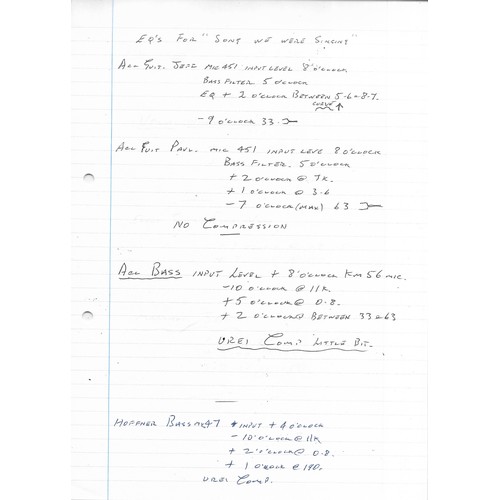 EQ'S FOR "SONG WE WERE SINGING"
ACC GUIT. JEFF MIC 451 INPUT LEVEL 8 O'CLOCK
BASS FILTER 5 O'CLOCK
EQ + 2 O'CLOCK BETWEEN 5.6 & 8.7.
CURVE ↑
- 9 O'CLOCK 33
ACC GUIT PAUL. MIC 451 INPUT LEVE 8 O'CLOCK
BASS FILTER. 5 O'CLOCK
+ 2 O'CLOCK @ 7K.
+ 1 O'CLOCK @ 3.6
- 7 O'CLOCK (MAX) 63
NO COMPRESSION
ACC BASS INPUT LEVEL + 8 O'CLOCK KM56 MIC.
-10 O'CLOCK @ 11K
+5 O'CLOCK @ 0.8.
+ 2 BETWEEN 33 & 63
UREI COMP LITTLE BIT.
HOFFNER BASS 47 INPUT + 4 O'CLOCK
- 10 O'CLOCK @ 11K
+ 2 O'CLOCK @ 0.8.
+ 1 O'CLOCK @ 190.
UREI COMP.